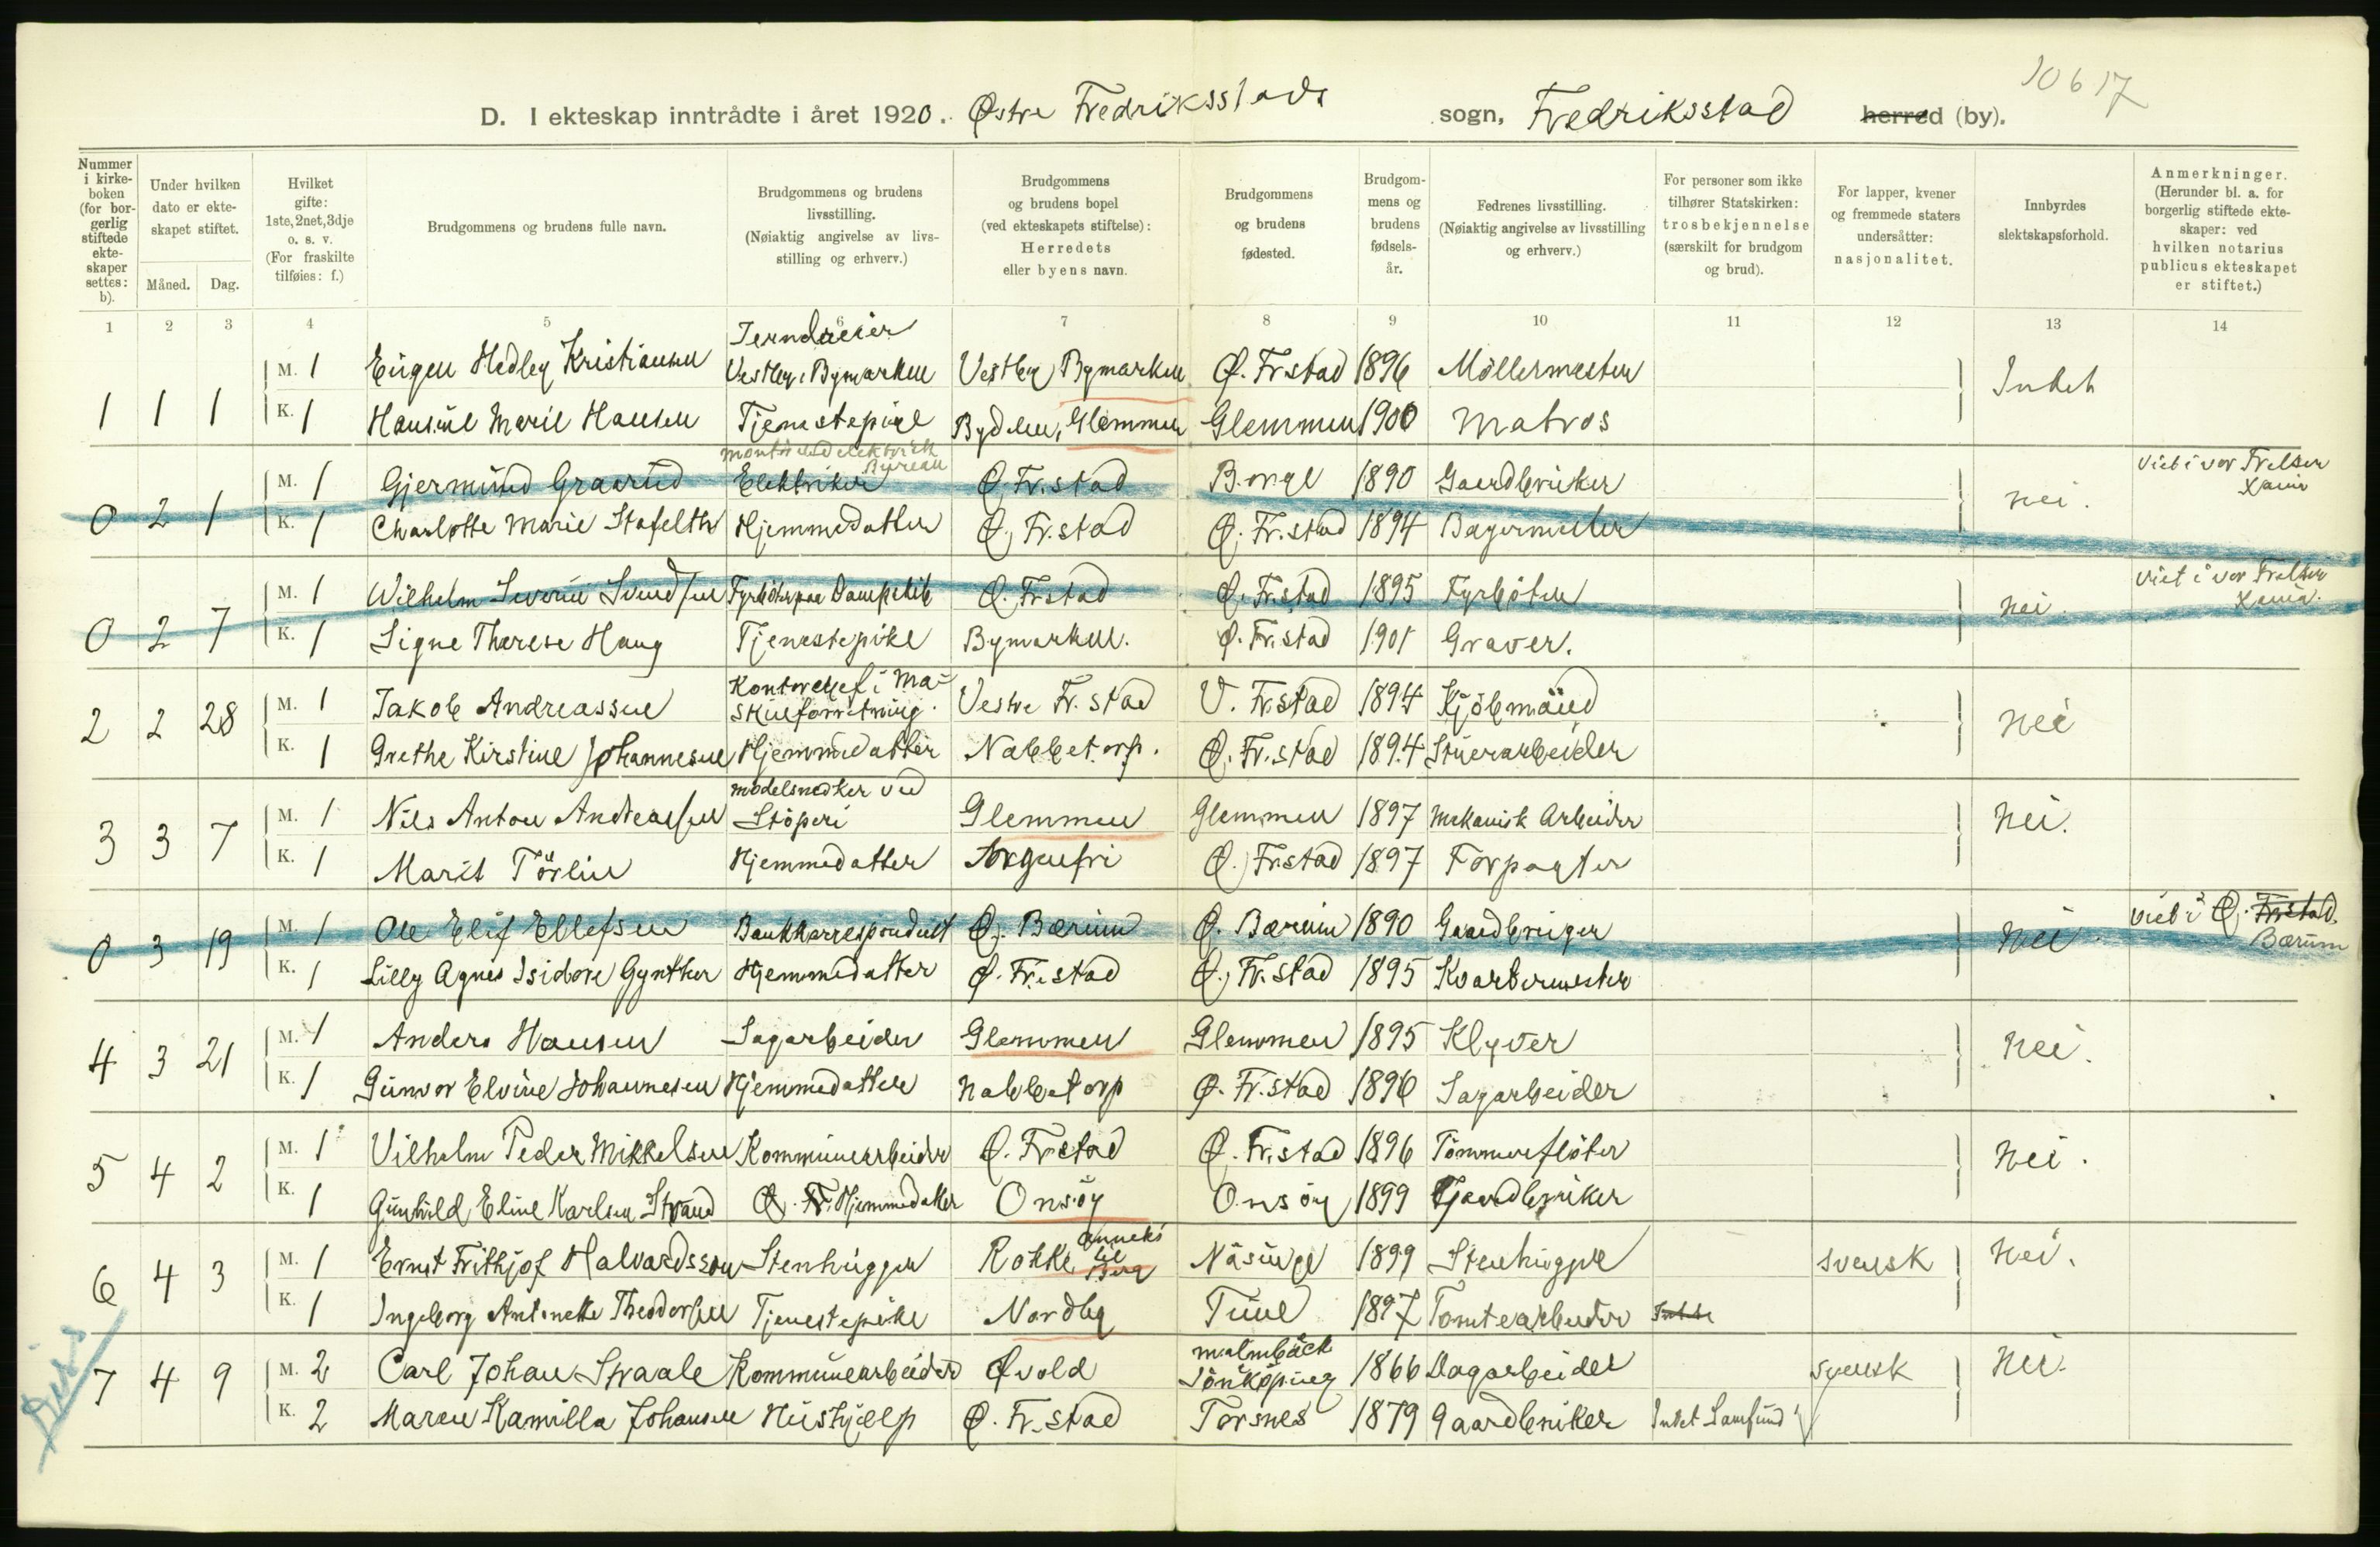 10617
D. I ekteskap inntrådte i året 1920. Østre Fredriksstads sogn, Fredriksstad herred (by).
Nummer i kirkeboken (for borgerlig stiftede ekteskaper settes: b).
Under hvilken dato er ekteskapet stiftet. Måned. Dag.
Hvilket gifte: 1ste, 2net, 3dje o. s. v. (For fraskilte tilføies: f.)
Brudgommens og brudens fulle navn.
Brudgommens og brudens livsstilling. (Nøiaktig angivelse av livsstilling og erhverv.)
Brudgommens og brudens bopel (ved ekteskapets stiftelse): Herredets eller byens navn.
Brudgommens og brudens fødested.
Brudgommens og brudens fødselsår.
Fedrenes livsstilling. (Nøiaktig angivelse av livsstilling og erhverv.)
For personer som ikke tilhører Statskirken: trosbekjennelse (særskilt for brudgom og brud).
For lapper, kvener og fremmede staters undersåtter: nasjonalitet.
Innbyrdes slektskapsforhold.
Anmerkninger. (Herunder bl. a. for borgerlig stiftede ekteskaper: ved hvilken notarius publicus ekteskapet er stiftet.)
1 2 3 4 5 6 7 8 9 10 11 12 13 14
Jerndreier
M. 1 Eugen Hedley Kristiansen Vestby, Bymarken Vestby Bymarken Ø. Fr.stad 1896 Möllermester Intet
1 1 1 K. 1 Hansine Marie Hansen Tjenestepige Bydelen, Glemmen Glemmen 1900 Matros
montör ved elektrisk Bureau
M. 1 Gjermund Graarud Elektriker Ø. Fr.stad Borge 1890 Gaardbruker nei. Viet i vor Frelser Xania
0 2 1 K. 1 Charlotte Marie Stafelth Hjemmedatter Ø. Fr.stad Ø. Fr.stad 1894 Bagermester
M. 1 Wilhelm Severin Svendsen Fyrböter paa Dampskib Ø. Fr.stad Ø. Fr.stad 1895 Fyrböter nei. viet i vor Frelser Xania.
0 2 7 K. 1 Signe Therese Haug Tjenestepike Bymarken. Ø. Fr.stad 1901 Graver.
M. 1 Jakob Andreassen Kontorchef i Maskinforretning. Vestre Fr.stad V. Fr.stad 1894 Kjöbmand nei
2 2 28 K. 1 Grethe Kirstine Johannesen Hjemmedatter Nabbetorp. Ø. Fr.stad 1894 Stuerarbeider
modelsnedker ved
M. 1 Nils Anton Andreassen Stöperi Glemmen Glemmen 1897 Mekanisk Arbeider Nei.
3 3 7 K. 1 Marit Törlin Hjemmedatter Sorgenfri Ø. Fr.stad 1897 Forpagter
M. 1 Ole Elif Ellefsen Bankkorrespondent Ø. Bærum Ø. Bærum 1890 Gaardbruger nei. viet i Ø. Fr.stad. Bærum
0 3 19 K. 1 Lilly Agnes Isidore Gynther Hjemmedatter Ø. Fr.stad Ø. Fr.stad 1895 Kvartermester
M. 1 Anders Hansen Sagarbeider Glemmen Glemmen 1895 Klyver Nei.
4 3 21 K. 1 Gunvor Elvine Johannesen Hjemmedatter Nabbetorp Ø. Fr.stad 1896 Sagarbeider
M. 1 Vilhelm Peder Mikkelsen Kommunearbeider Ø. Fr.stad Ø. Fr.stad 1896 Tömmerflöter Nei.
5 4 2 K. 1 Gunhild Eline Karlsen Strand Ø. Fr. Hjemmedatter Onsöy Onsöy 1899 Gaardbruker
M. 1 Ernst Frithjof Halvardsson Stenhugger Rokke anneks til Berg Näsinge 1899 Stenhugger svensk Nei.
6 4 3 K. 1 Ingeborg Antonette Theodorsen Tjenestepike Nordby Tune 1897 Tomtearbeider Intet
M. 2 Carl Johan Straale Kommunearbeider Øvold malmbäck Jönköping 1866 Dagarbeider svensk Nei.
7 4 9 K. 2 Maren Kamilla Johansen Hushjælp Ø. Fr.stad Torsnes 1879 Gaardbruker Intet Samfund